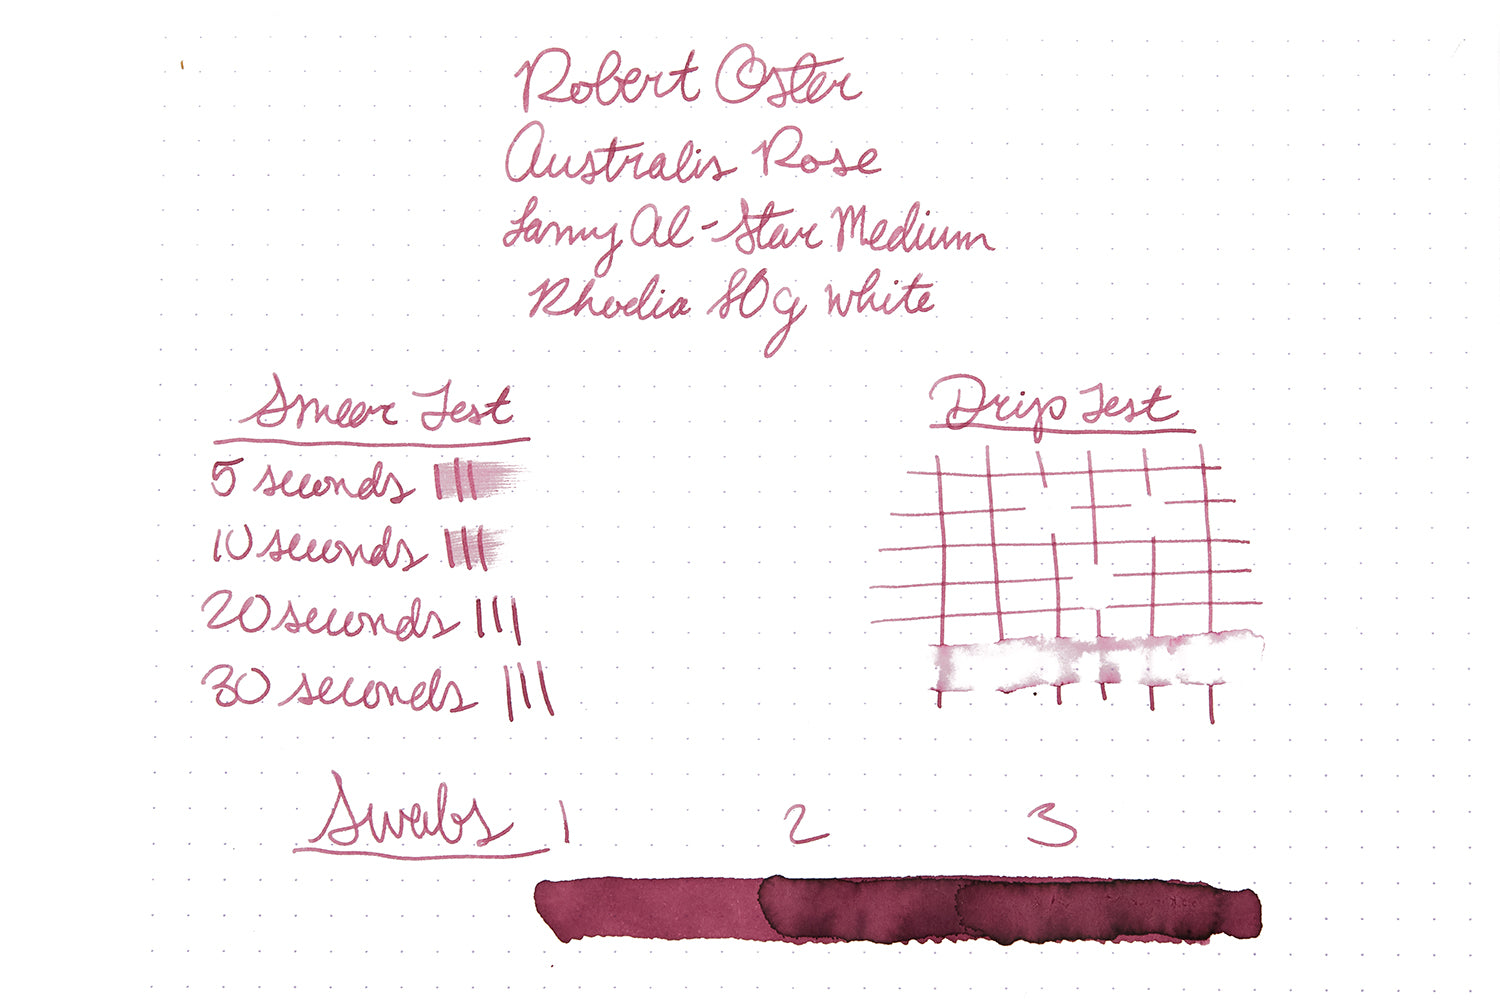 Robert Oster
Australis Rose
Lamy Al-Star Medium
Rhodia 80g white
Smear Test
5 seconds
10 seconds
20 seconds
30 seconds
Drip Test
Swabs 1 2 3